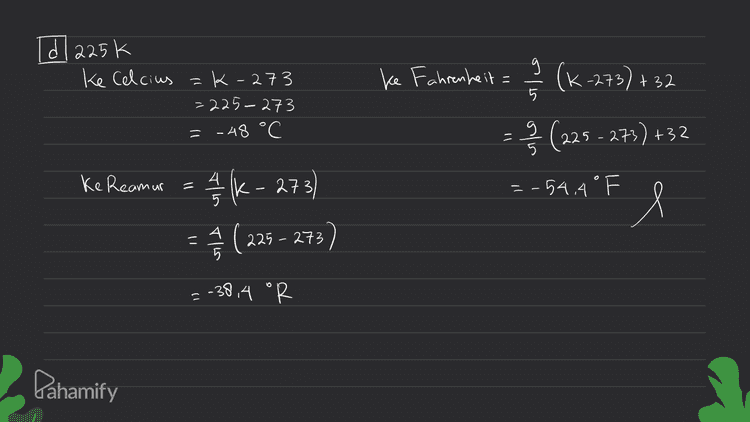 d 225 K
Ke Celcius = K - 273
= 225 - 273
= -48 °C
Ke Reamur = 4/5 (K - 273)
= 4/5 (225 - 273)
= -38,4 °R
Ke Fahrenheit = 9/5 (K - 273) + 32
= 9/5 (225 - 273) + 32
= -54,4 °F
Pahamify